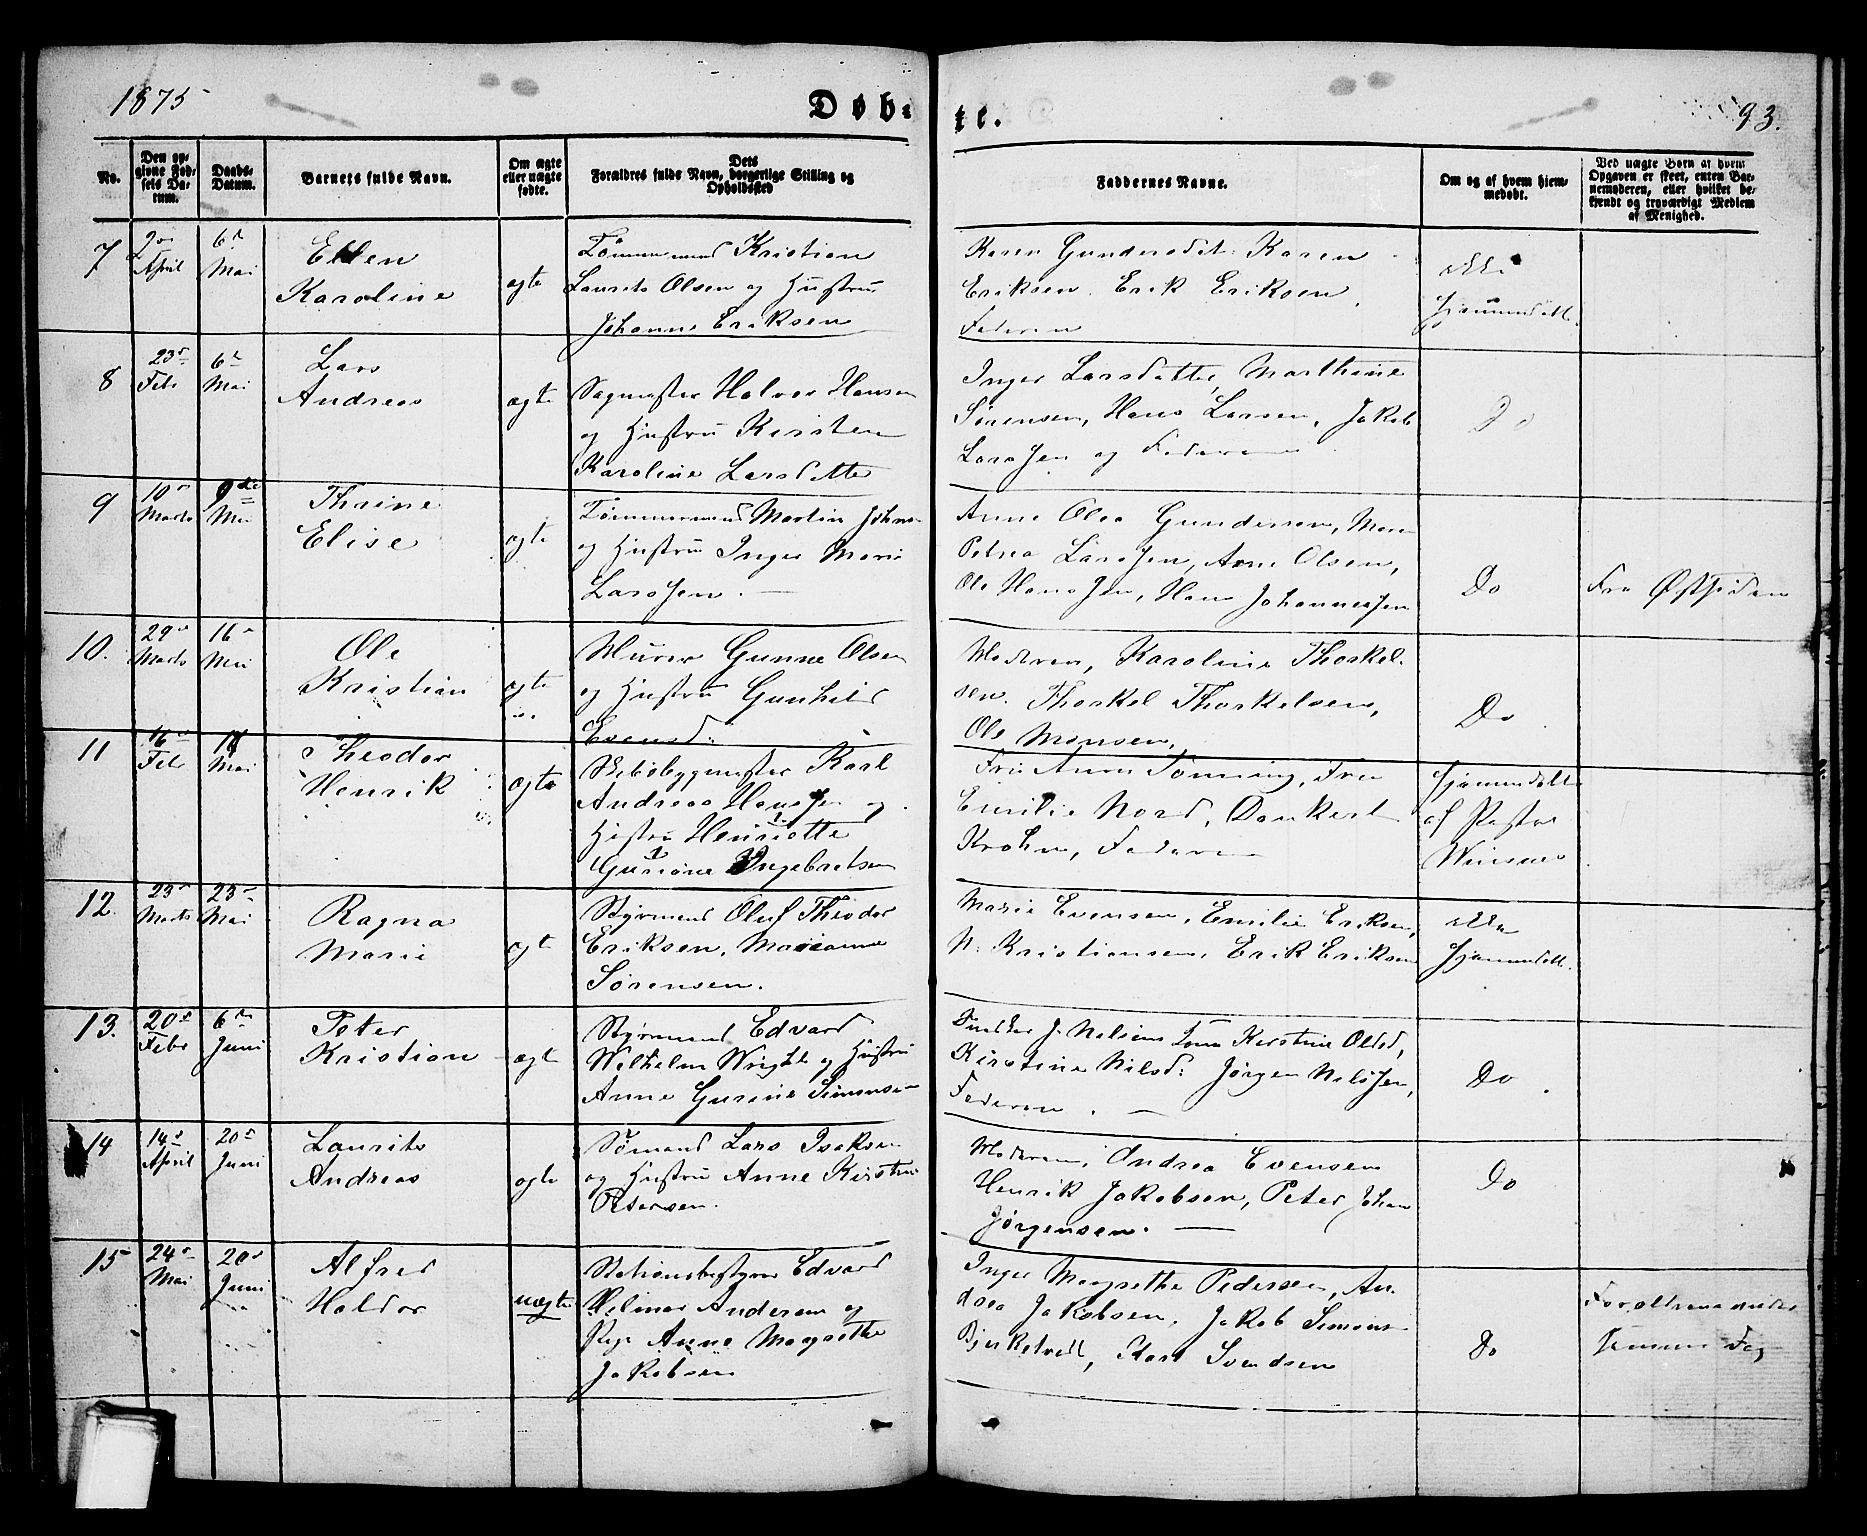 1875
Døb-
te.
93.
No.
Den op-
givne Fød-
sels Da-
tum.
Daabs-
Datum.
Barnets fulde Navn.
Om ægte
eller uægte
fødte.
Dets
Forældres fulde Navn, borgerlige Stilling og
Opholdssted
Faddernes Navne.
Om og af hvem hjem-
medøbt.
Ved uægte Børn af hvem
Opgaven er skeet, enten Bar-
nemoderen, eller hvilket be-
kjendt og troværdigt Medlem
af Menighed.
7
April
6
Mai
Ellen
Karoline
ægte
Tømmermand Kristian
Laurits Olsen og Hustru
Johanne Eriksen
Karen Gundersdat: Karen
Eriksen, Erik Eriksen,
Faderen
ikke
hjemmedøbt.
8
23
Febr
6
Mai
Lars
Andreas
ægte
Sagmester Halvor Hansen
og Hustru Kirsten
Karoline Larsdatter
Inger Larsdatter, Marthine
Sørensen, Hans Larsen, Jakob
Larssen og Faderen
Do
9
10
Marts
9de
Mai
Thrine
Elise
ægte
Tømmermand Martin Johns
og Hustru Inger Marie
Larssen.
Anne Olea Gundersen, Maren
Petrea Larssen, Arne Olsen,
Ole Hanssen, Hans Johannessen
Do
Fra Østsiden
10.
29
Marts
16
Mai
Ole
Kristian
ægte
Murer Gunne Olsen
og Hustru Gunhild
Evensd:
Moderen, Karoline Thorkel-
sen. Thorkel Thorkelsen,
Ole Monsen,
Do
11
16
Febr
Mai
Theodor
Henrik
ægte
Skibsbygmester Karl
Andreas Hanssen og
Hustru Henriette
Gurine Ingebretsen
Fru Anna Tønning, Fru
Emilie Nord, Dankert
Krohn, Faderen
hjemmedøbt
af Pastor
Winsnes
12.
23
Marts
23
Mai
Ragna
Marie
ægt
Styrmand Oluf Theodor
Eriksen, Marianne
Sørensen.
Marie Evensen, Emilie Eriksen,
N. Kristiansen, Erik Eriksen
ikke
hjemmedøbt.
13.
20
Febr
6
Juni
Peter
Kristian
ægt
Styrmand Edvard
Wilhelm Wright og Hustru
Anne Gurine Simonse
J. Nielsens Kirstine Olsd,
Kirstine Nilsd: Jørgen Nilssen,
Faderen.
Do
14
14
April
20
Juni
Laurits
Andreas
ægte
Sømand Lars Isaksen
og Hustru Anne Kirstine
Petersen.
Moderen, Andrea Evensen
Henrik Jakobsen, Peter Johan
Jørgensen.
Do
15
24
Mai
20
Juni
Alfred
Haldor
uægte
Stationsbestyrer Edvard
Helmer Andersen og
Pige Anne Margrethe
Jakobsen
Inger Margrethe Pedersen, An-
drea Jakobsen, Jakob Simons
Bjerketvedt, Karl Svendsen
Do
Forældrene